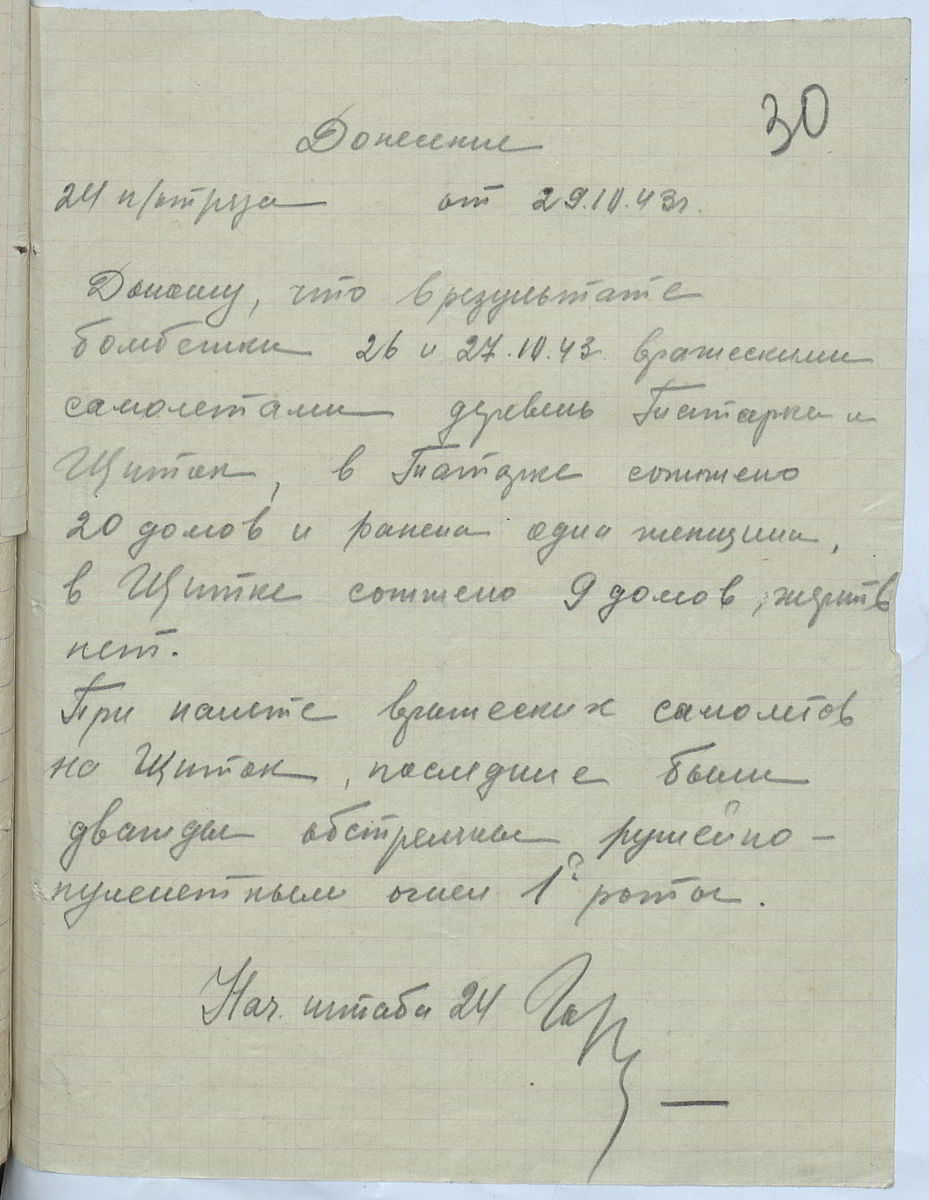 30
Донесение
24 п/отряда от 29.IV.43г.
Доношу, что в результате
бомбежки 26 и 27.IV.43 вражескими
самолетами деревень Татарка и
Щиток, в Татарке сожжено
20 домов и ранена одна женщина,
в Щитке сожжено 9 домов, жертв
нет.
При налете вражеских самолетов
на Щиток, последние были
дважды обстреляны ружейно-
пулеметным огнем 1й роты.
Нач. штаба 24